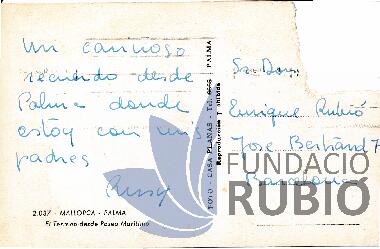 Un cariñoso
recuerdo desde
Palma donde
estoy con mis
padres
Rusy
2.037 - MALLORCA - PALMA
El Terreno desde Paseo Marítimo
FOTO - CASA PLANAS - Tel. 6666 PALMA
Reproducción Prohibida
Sr. Don
Enrique Rubió
Jose Bertrand 7
Barcelona
FUNDACIÓ
RUBIÓ